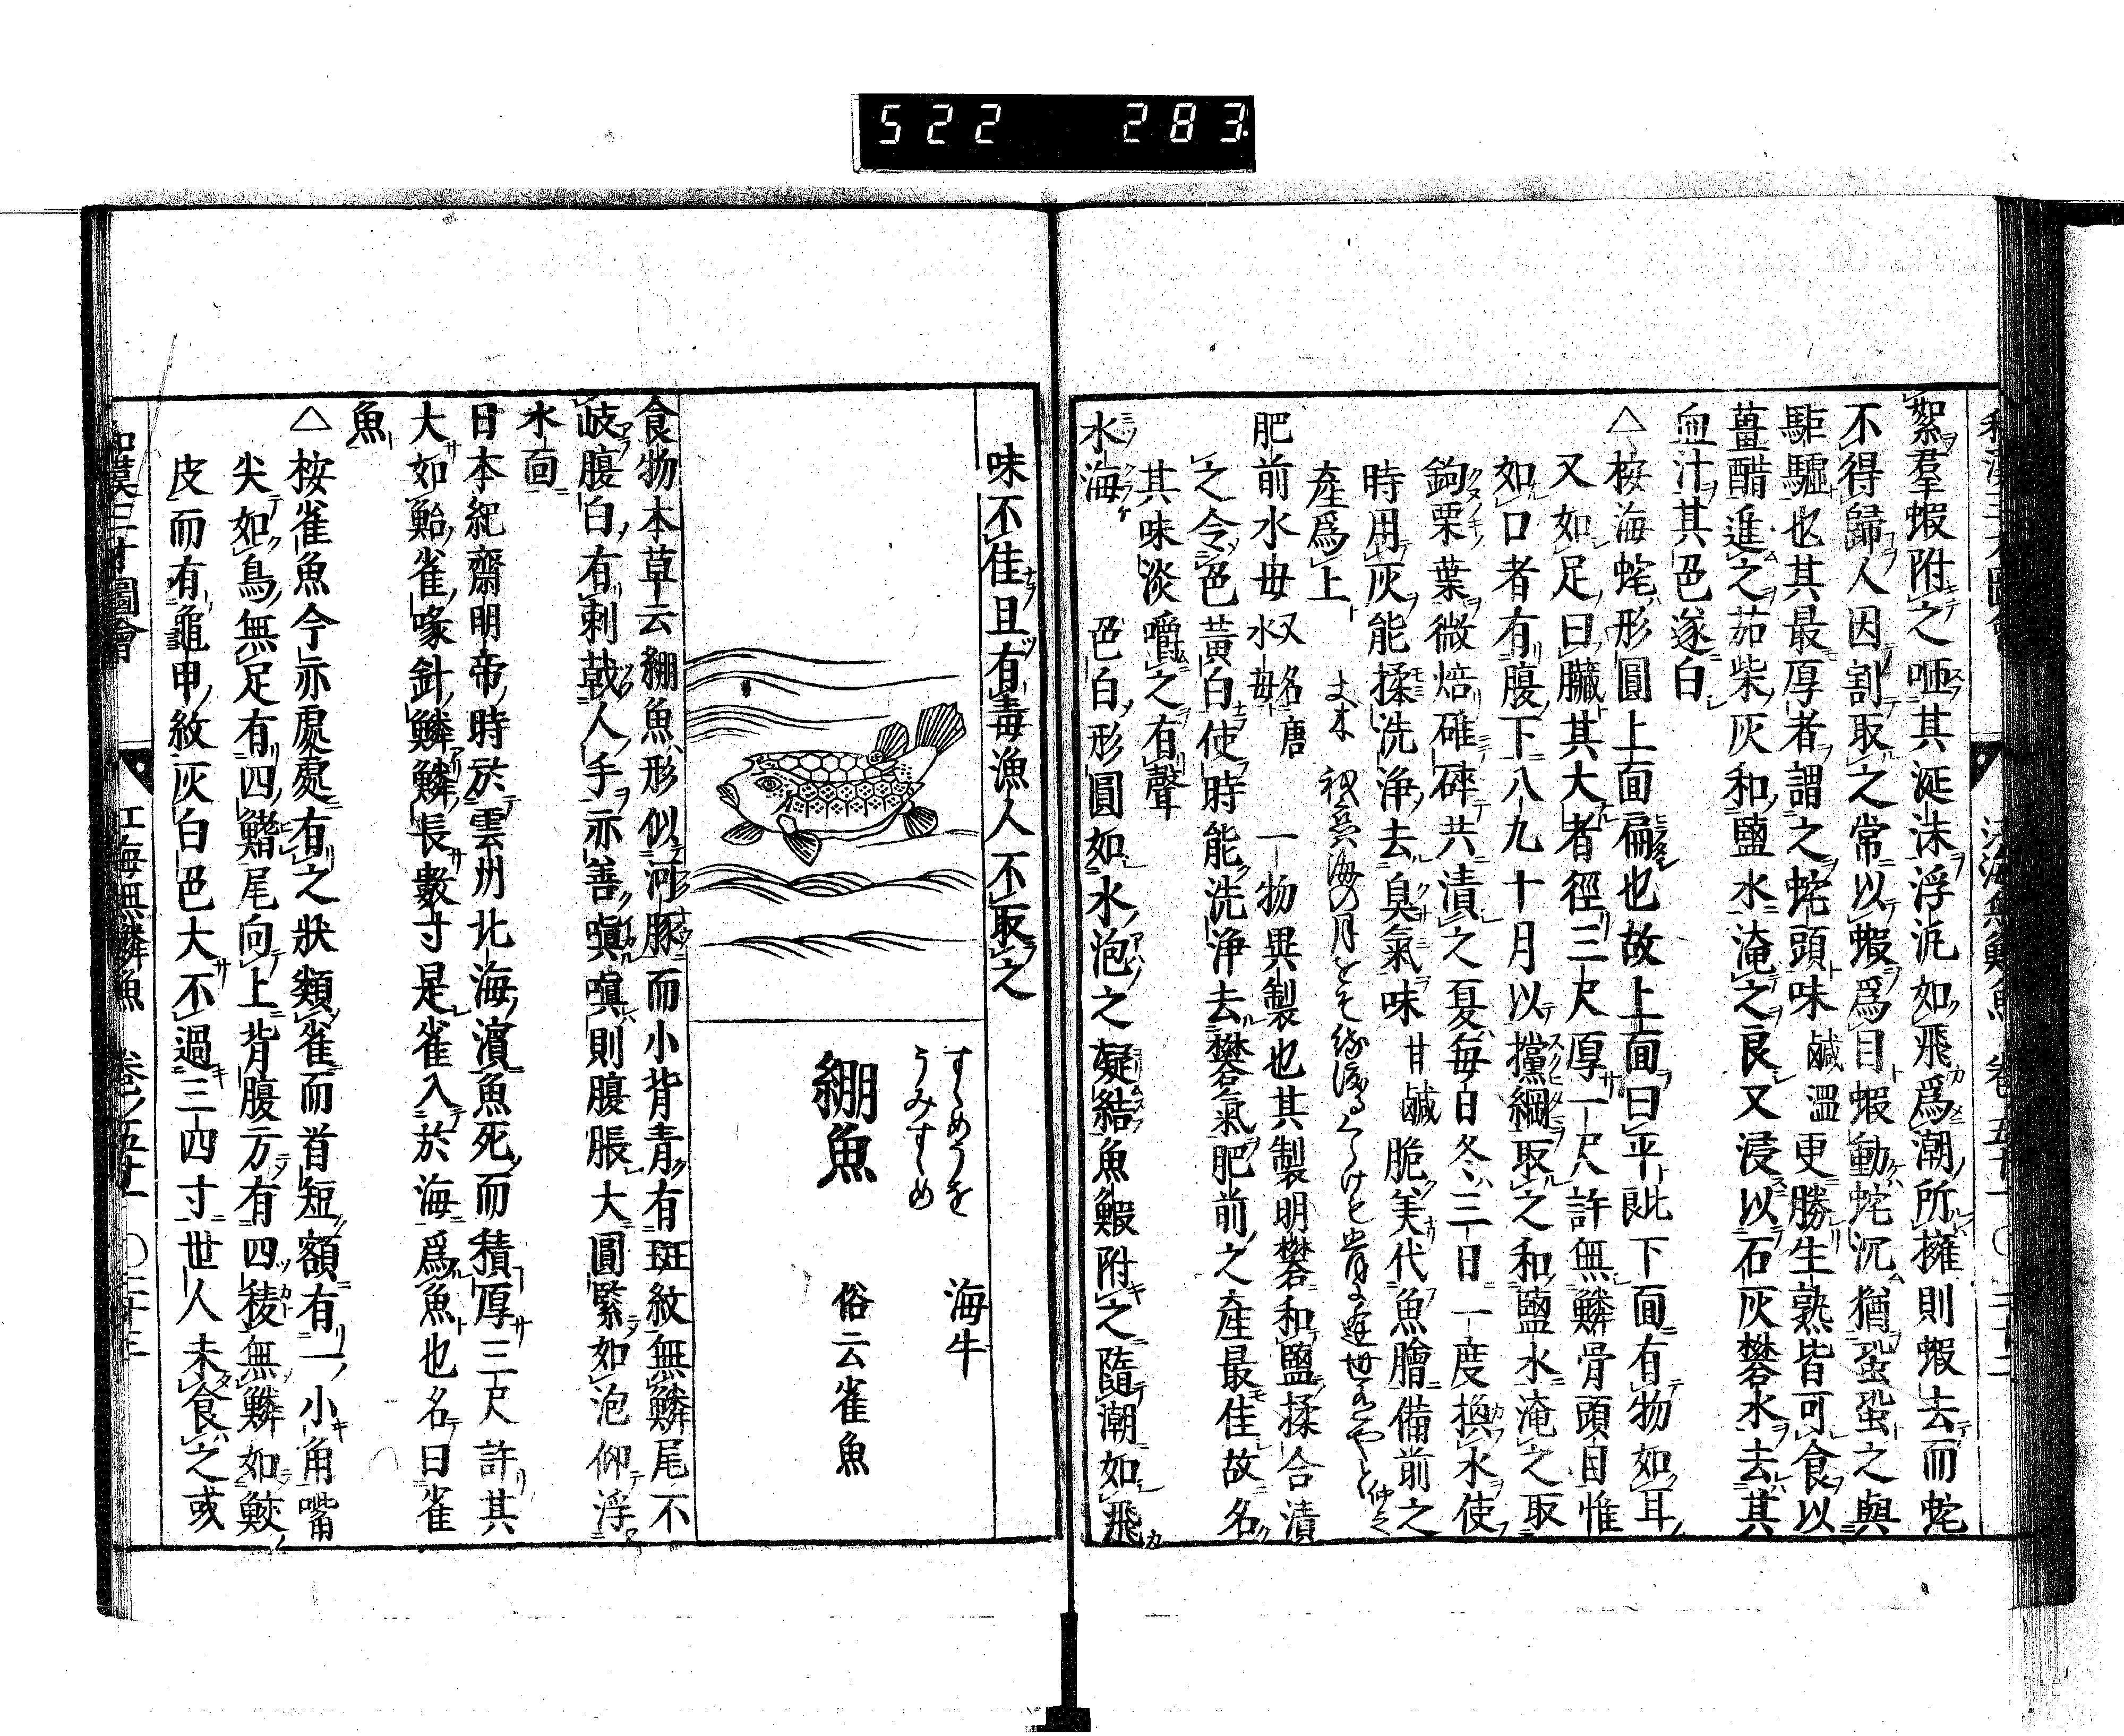 522 283
絮羣蝦附之咂其涎沫浮汎如飛爲潮所擁則蝦去而蛇
不得歸人因割取之常以蝦爲目蝦動蛇沉猶蛩蛩之與
駏驉也其最厚者謂之蛇頭味鹹溫更勝生熟皆可食以
薑醋進之茄柴灰和鹽水淹之良又浸以石灰礬水去其
血汁其色遂白
△桉海蛇形圓上面扁也故上面曰平㿝下面有物如耳
又如足曰臟其大者徑三尺厚一尺許無鱗骨頭目惟
如口者有腹下八九十月以攩網取之和鹽水淹之取
鉤栗葉微焙碓碎共漬之夏每日冬三日一度換水使
時用灰能揉洗浄去臭氣味甘鹹脆美代魚膾備前之
產爲上
肥前水母又名唐水母一物異製也其製明礬和鹽揉合漬
之令色黃白使時能洗浄去礬氣肥前之產最佳故名
其味淡嚼之有聲
水海色白形圓如水泡之凝結魚鰕附之隨潮如飛
味不佳且有毒漁人不取之
すゝめうを
うみすゝめ
海牛
䱶魚
俗云雀魚
食物本草云䱶魚形似河豚而小背青有斑紋無鱗尾不
岐腹白有刺戟人手亦善嗔嗔則腹脹大圓緊如泡仰浮
水面
日本紀齋明帝時於雲州北海濱魚死而積厚三尺許其
大如鮐雀喙針鱗鱗長數寸是雀入於海爲魚也名曰雀
魚
△桉雀魚今亦處處有之狀類雀而首短額有一小角嘴
尖如鳥無足有四鰭尾向上背腹方有四稜無鱗如鮫
皮而有龜甲紋灰白色大不過三四寸世人未食之或
和漢三才圖會 江海無鱗魚 卷ノ五十一